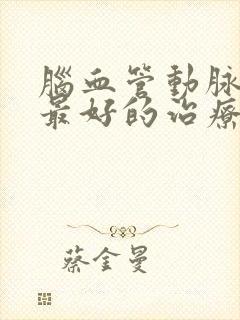 腦血管動脈
最好的治療
蔡金曼